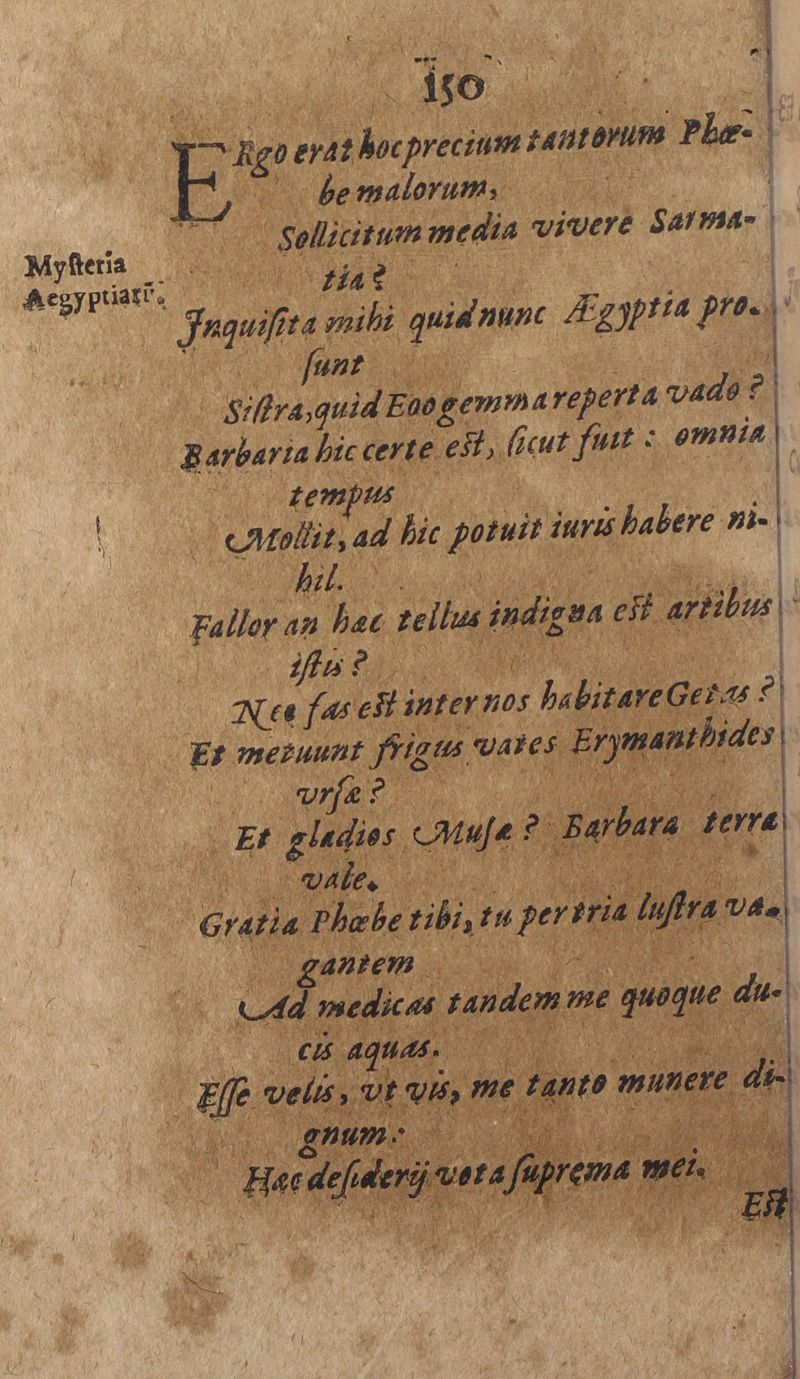 150
ERgo erat hoc precium tantorum Phœ-
be malorum,
Sollicitum media vivere Sarma-
tia?
Mysteria
Aegyptiaci.
Inquisita mihi quid nunc Ægyptia pro-
sunt
Sistra, quid Eoo gemma reperta vado?
Barbaria hic certe est, sicut fuit: omnia
tempus
Mollit, ad hic potuit iuris habere ni-
hil.
Fallor an hæc tellus indigna est artibus
istis?
Nec fas est inter nos habitare Getas?
Et metuunt frigus vates Erymanthides
vrsæ?
Et gladios Musæ? Barbara terra
vale.
Gratia Phœbe tibi, tu per tria lustra va-
gantem
Ad medicas tandem me quoque du-
cis aquas.
Esse velis, vt vis, me tanto munere di-
gnum:
Hæc desiderij vota suprema mei.
Est